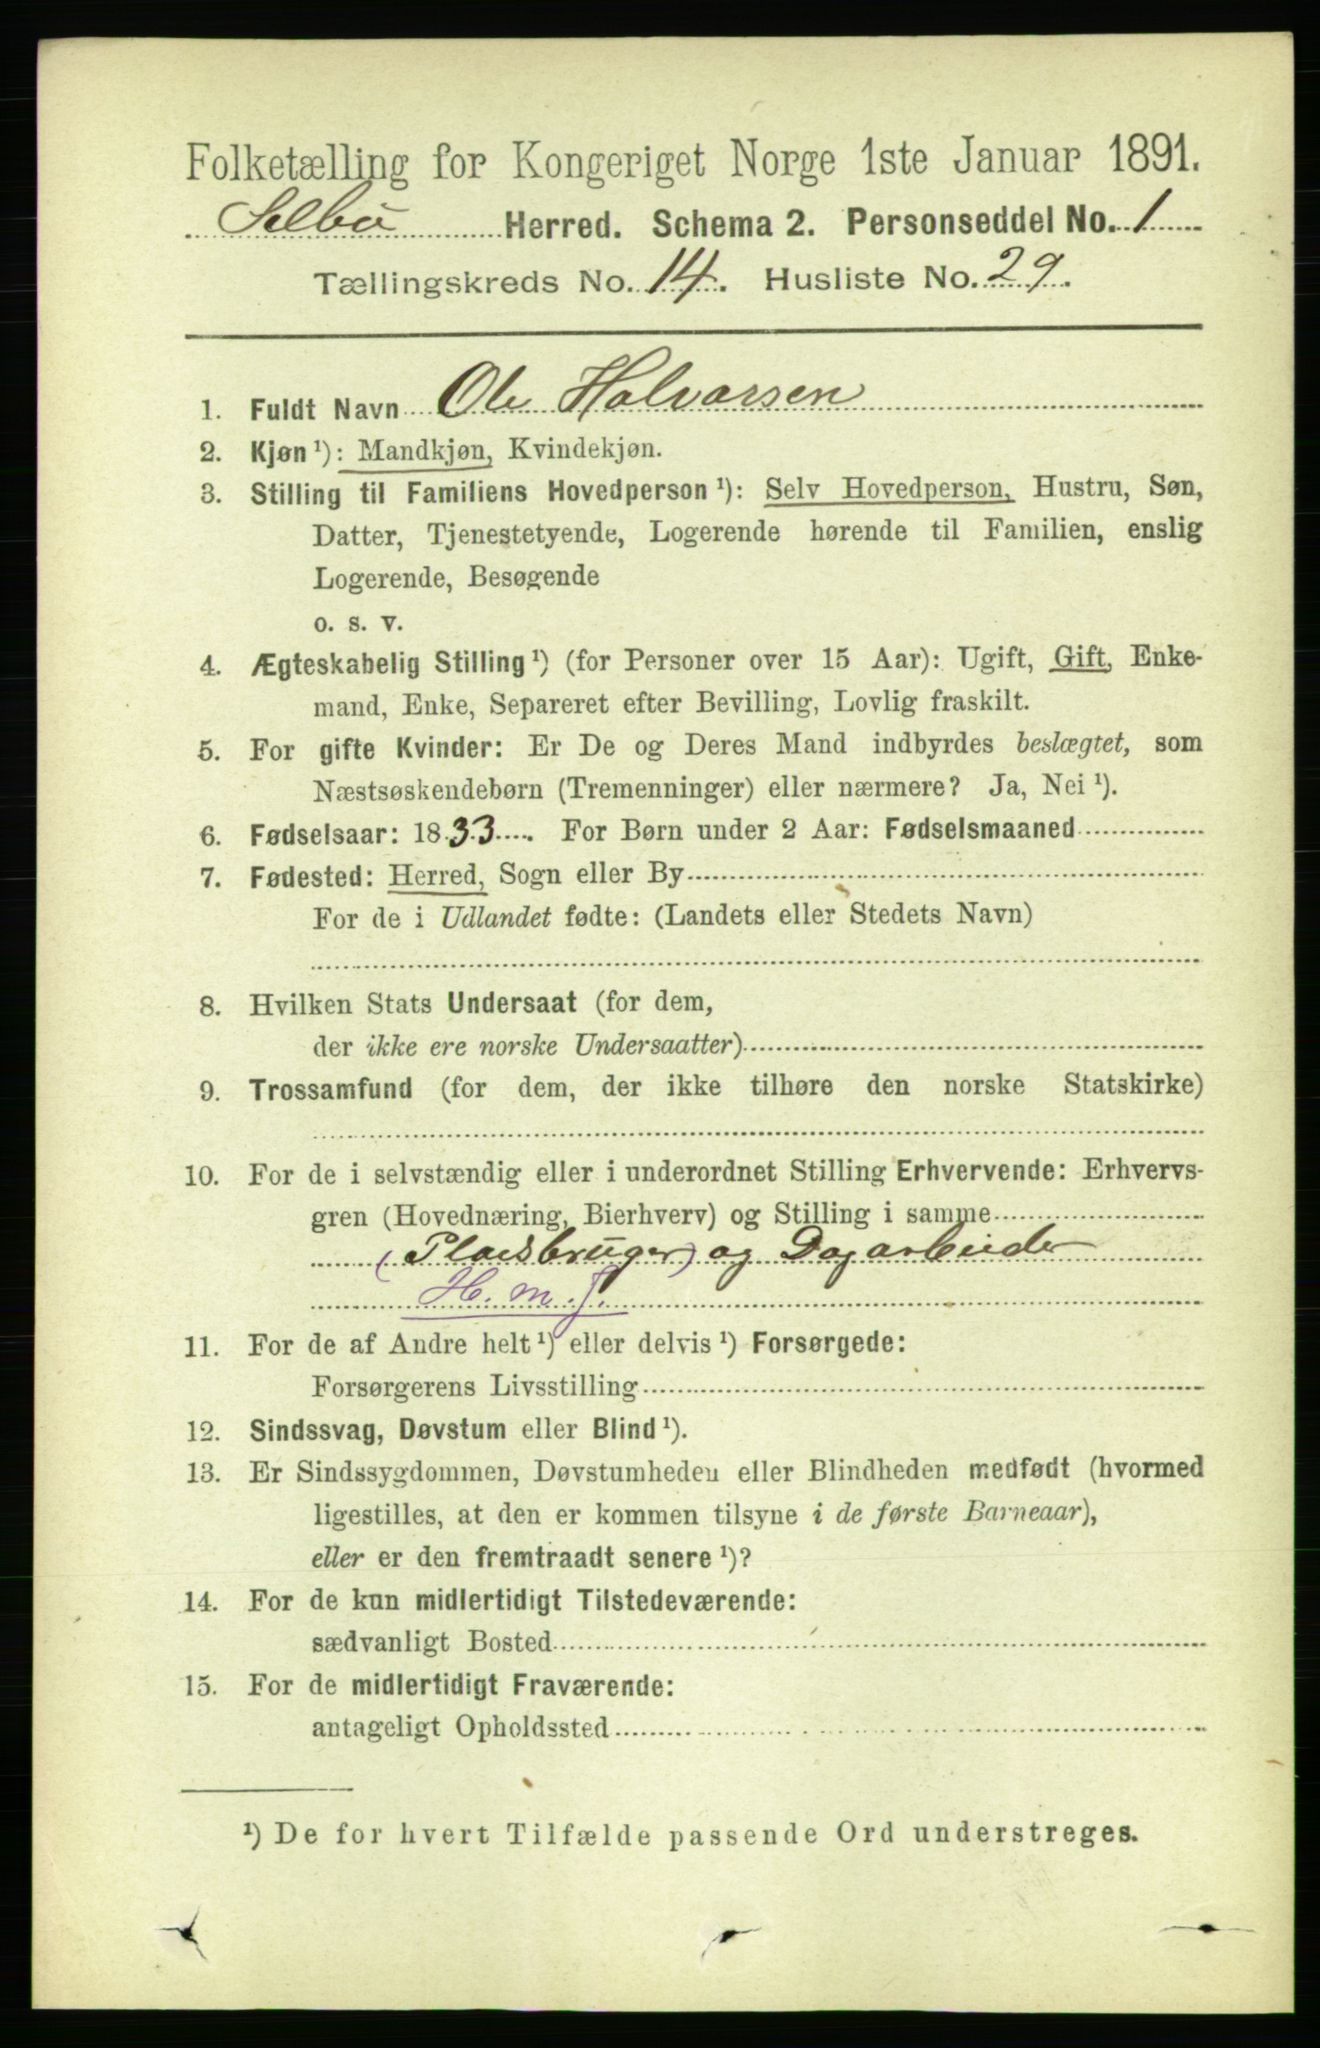 Folketælling for Kongeriget Norge 1ste Januar 1891.
Selbu Herred. Schema 2. Personseddel No. 1
Tællingskreds No. 14. Husliste No. 29.
1. Fuldt Navn Ole Halvarsen
2. Kjøn ¹): Mandkjøn, Kvindekjøn.
3. Stilling til Familiens Hovedperson ¹): Selv Hovedperson, Hustru, Søn,
Datter, Tjenestetyende, Logerende hørende til Familien, enslig
Logerende, Besøgende
o. s. v.
4. Ægteskabelig Stilling ¹) (for Personer over 15 Aar): Ugift, Gift, Enke-
mand, Enke, Separeret efter Bevilling, Lovlig fraskilt.
5. For gifte Kvinder: Er De og Deres Mand indbyrdes beslægtet, som
Næstsøskendebørn (Tremenninger) eller nærmere? Ja, Nei ¹).
6. Fødselsaar: 1833. For Børn under 2 Aar: Fødselsmaaned
7. Fødested: Herred, Sogn eller By
For de i Udlandet fødte: (Landets eller Stedets Navn)
8. Hvilken Stats Undersaat (for dem,
der ikke ere norske Undersaatter)
9. Trossamfund (for dem, der ikke tilhøre den norske Statskirke)
10. For de i selvstændig eller i underordnet Stilling Erhvervende: Erhvervs-
gren (Hovednæring, Bierhverv) og Stilling i samme
(Pladsbruger) og Dagarbeider
H. m. J.
11. For de af Andre helt ¹) eller delvis ¹) Forsørgede:
Forsørgerens Livsstilling
12. Sindssvag, Døvstum eller Blind ¹).
13. Er Sindssygdommen, Døvstumheden eller Blindheden medfødt (hvormed
ligestilles, at den er kommen tilsyne i de første Barneaar),
eller er den fremtraadt senere ¹)?
14. For de kun midlertidigt Tilstedeværende:
sædvanligt Bosted
15. For de midlertidigt Fraværende:
antageligt Opholdssted
¹) De for hvert Tilfælde passende Ord understreges.